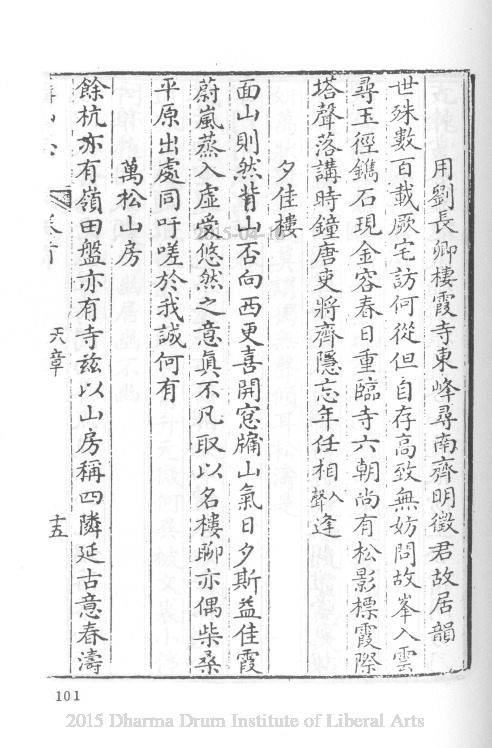 用劉長卿棲霞寺東峰尋南齊明徵君故居韻
世殊數百載厥宅訪何從但自存高致無妨問故峯入雲
尋玉徑鐫石現金容春日重臨寺六朝尚有松影標霞際
塔聲落講時鐘唐吏將齊隱忘年任相入聲逢
夕佳樓
面山則然背山否向西更喜開窓牖山氣日夕斯益佳霞
蔚嵐蒸入虛受悠然之意真不凡取以名樓聊亦偶柴桑
平原出處同吁嗟於我誠何有
萬松山房
餘杭亦有嶺田盤亦有寺茲以山房稱四隣延古意春濤
天章
十五
101
2015 Dharma Drum Institute of Liberal Arts